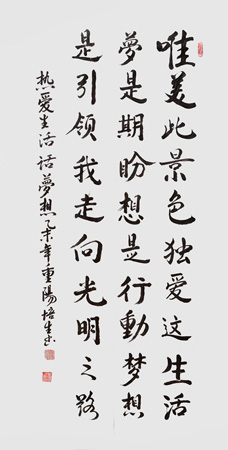 唯美此景色独爱这生活
夢是期盼想是行動梦想
是引领我走向光明之路
热爱生活话夢想乙未年重陽培生书